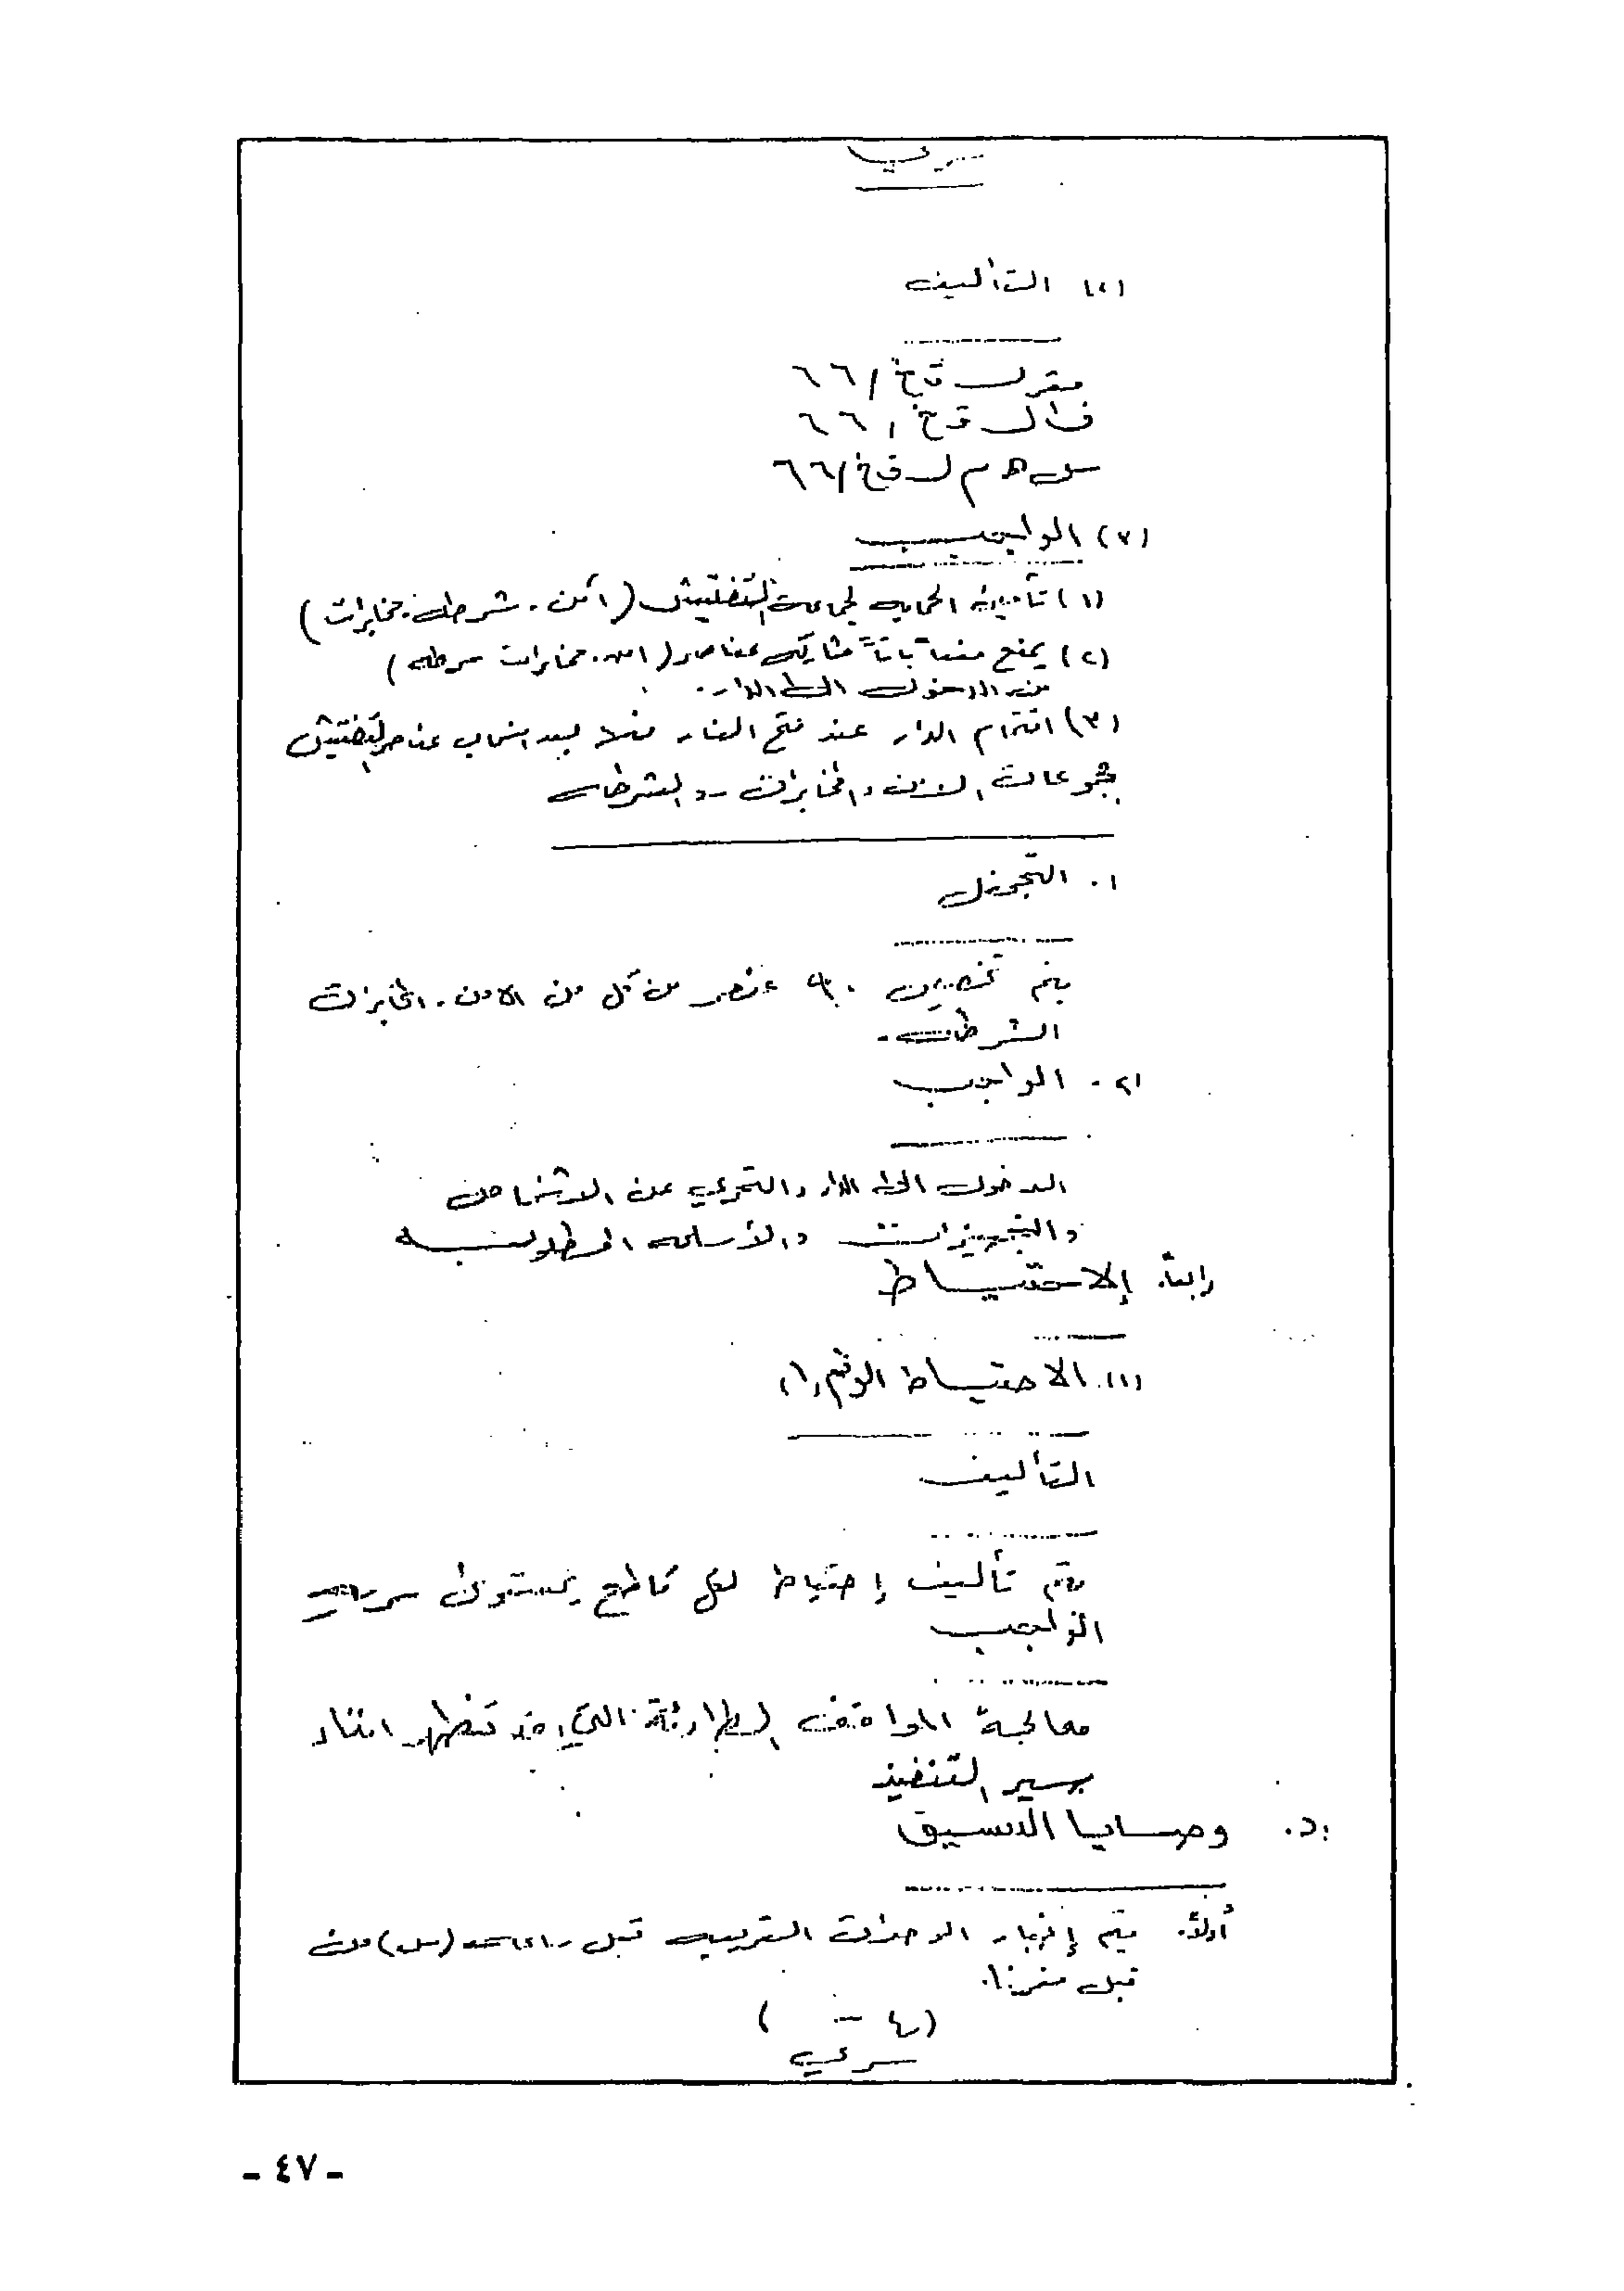 سري
التأليف
مقر ل ق خ / ٦٦
ف١ ل ق خ / ٦٦
س هـ م ل ق خ / ٦٦
(٧) الواجب
(١) تأمين الحماية لجماعة التفتيش (أمن. شرطة. مخابرات)
(٢) يمنع منعاً باتاً مشاركة عناصر (امن. مخابرات شرطة)
من الدخول الى الدار.
(٣) اقتحام الدار عند فتح النار بعد انسحاب عناصر التفتيش
مجموعات الامن والمخابرات والشرطة
١. التجول
يتم تخصيص عنصر من كل من الامن. المخابرات
الشرطة.
٢. الواجب
الدخول الى الدار والتحري عن الاشخاص
والتجهيزات والأسلحة المطلوبة
رابعاً. الاحتياط
(١). الاحتياط الرقم (١)
التأليف
يتم تأليف إحتياط لكل قاطع بمستوى سرية
الواجب
معالجة المواقف الطارئة التي قد تظهر اثناء
سير التنفيذ
د. وصايا التنسيق
أولاً. يتم إخبار الوحدات القريبة قبل (س) من
قبل مقرنا.
(٤ - )
سري
- ٤٧ -